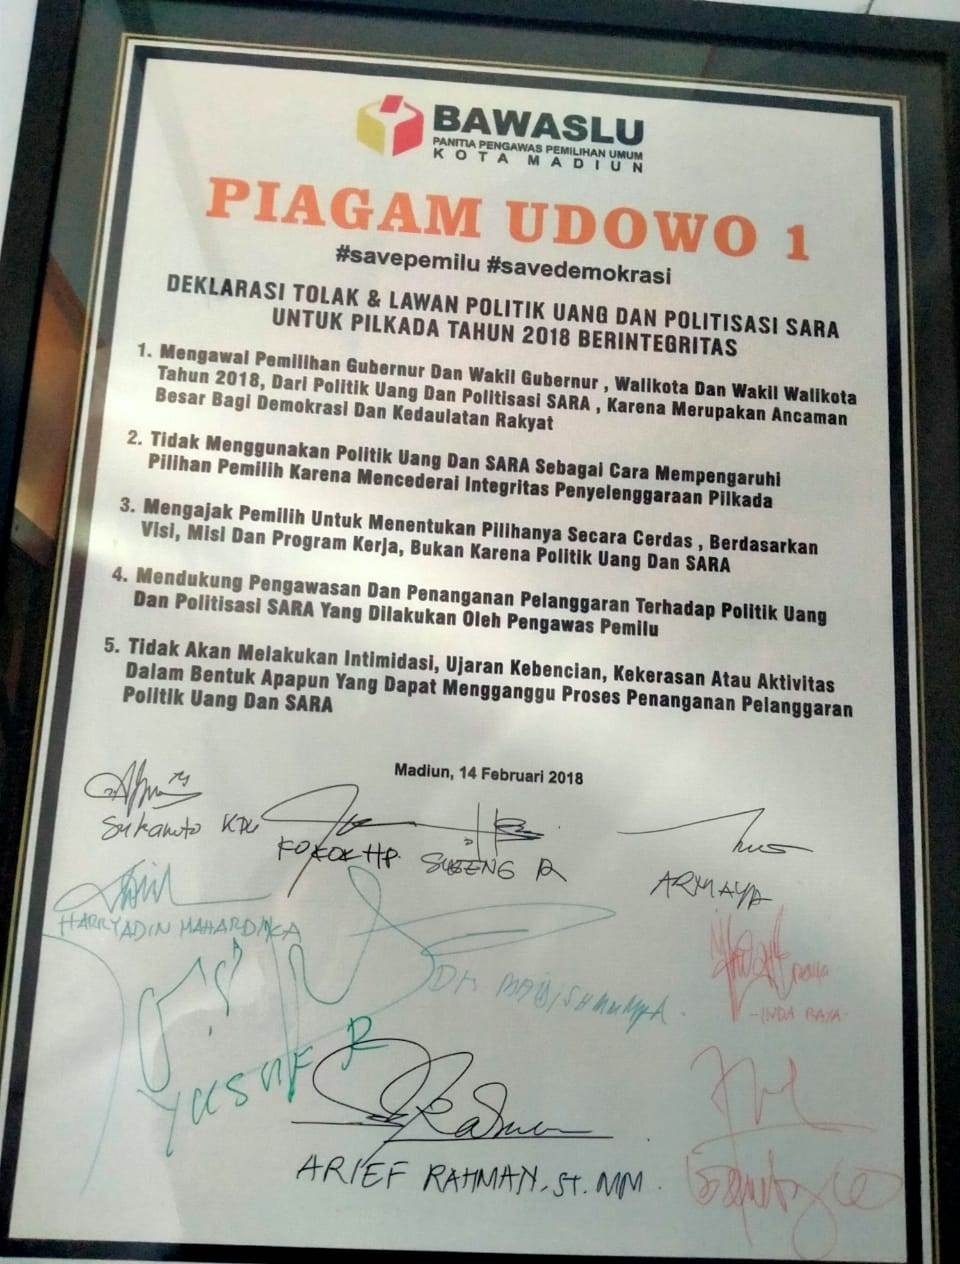 BAWASLU
PANITIA PENGAWAS PEMILIHAN UMUM
KOTA MADIUN
PIAGAM UDOWO 1
#savepemilu #savedemokrasi
DEKLARASI TOLAK & LAWAN POLITIK UANG DAN POLITISASI SARA
UNTUK PILKADA TAHUN 2018 BERINTEGRITAS
1. Mengawal Pemilihan Gubernur Dan Wakil Gubernur , Walikota Dan Wakil Walikota
Tahun 2018, Dari Politik Uang Dan Politisasi SARA , Karena Merupakan Ancaman
Besar Bagi Demokrasi Dan Kedaulatan Rakyat
2. Tidak Menggunakan Politik Uang Dan SARA Sebagai Cara Mempengaruhi
Pilihan Pemilih Karena Mencederai Integritas Penyelenggaraan Pilkada
3. Mengajak Pemilih Untuk Menentukan Pilihanya Secara Cerdas , Berdasarkan
Visi, Misi Dan Program Kerja, Bukan Karena Politik Uang Dan SARA
4. Mendukung Pengawasan Dan Penanganan Pelanggaran Terhadap Politik Uang
Dan Politisasi SARA Yang Dilakukan Oleh Pengawas Pemilu
5. Tidak Akan Melakukan Intimidasi, Ujaran Kebencian, Kekerasan Atau Aktivitas
Dalam Bentuk Apapun Yang Dapat Mengganggu Proses Penanganan Pelanggaran
Politik Uang Dan SARA
Madiun, 14 Februari 2018
KOKOK HP.
SUGENG R
ARMAYA
HARRYADIN MAHARDIKA
-INDA RAYA-
YUSUF R
ARIEF RAHMAN, ST. MM.